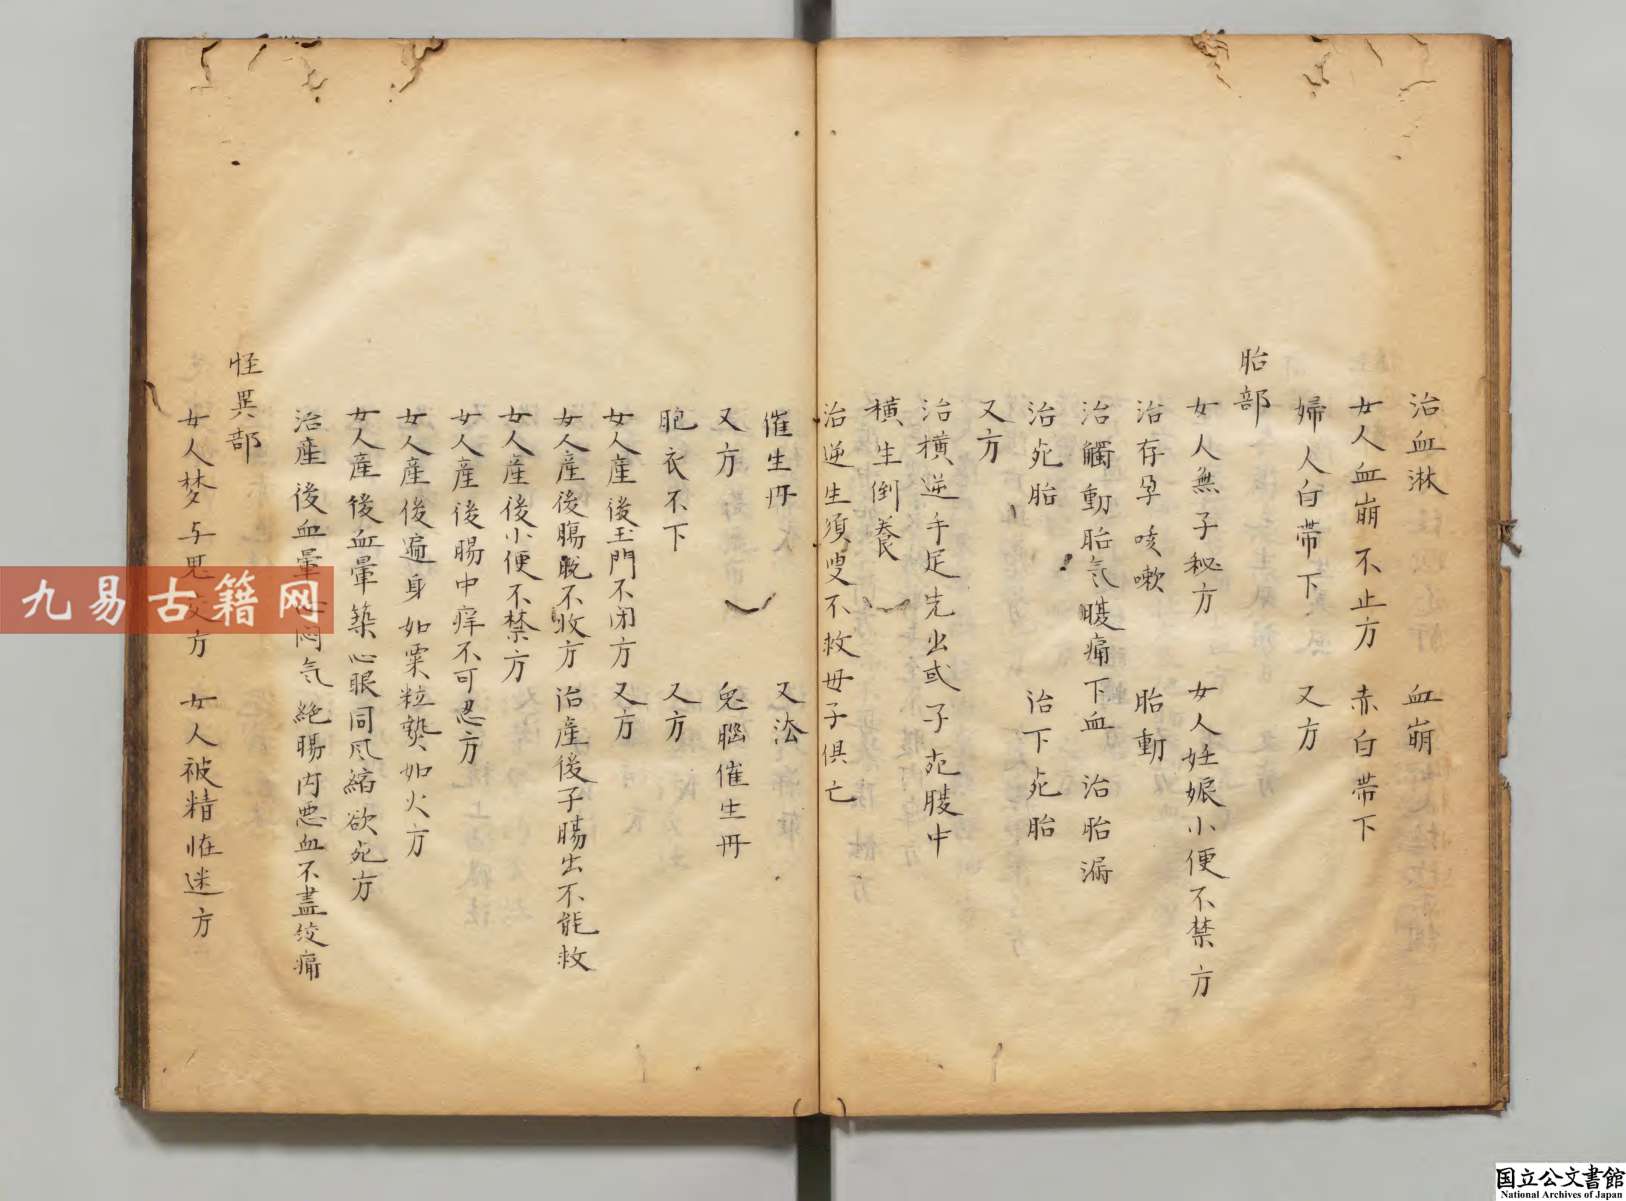 治血淋 血崩
女人血崩不止方 赤白带下
婦人白带下 又方
胎部
女人無子秘方 女人妊娠小便不禁方
治存孕咳嗽 胎動
治觸動胎气腹痛下血 治胎漏
治死胎 治下死胎
又方
治横逆手足先出或子死腹中
横生倒養
治逆生須臾不救母子俱亡
催生丹 又法
又方 兔腦催生丹
胞衣不下 又方
女人產後玉門不闭方 又方
女人產後腸脱不收方 治產後子腸出不能救
女人產後小便不禁方
女人產後腸中痒不可忍方
女人產後遍身如粟粒熱如火方
女人產後血暈築心眼同风縮欲死方
治產後血暈心悶气絶腸内恶血不盡绞痛
怪異部
女人梦与鬼交方 女人被精怪迷方
九易古籍网
国立公文書館
National Archives of Japan